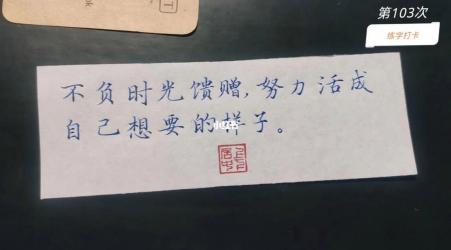 第103次
练字打卡
不负时光馈赠,努力活成
自己想要的样子。